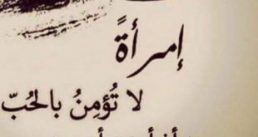 إمرأةً
لا تُؤمِنُ بالحُبّ